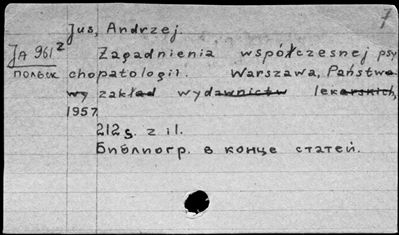 7
Jus, Andrzej.
JA 961² Zagadnienia współczesnej psy
польск chopatologii. Warszawa, Państwo
wy zakład wydawnictw lekarskich,
1957.
212 s. z il.
Библиогр. в конце статей.